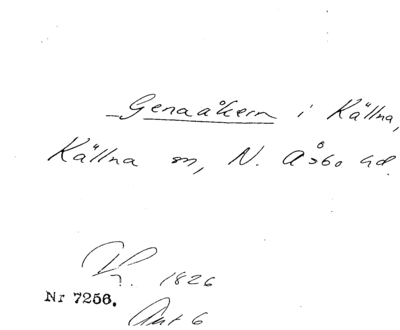 Genaåkern i Källna,
Källna sn, N. Åsbo hd.
1826
Nr 7256.
Akt 6